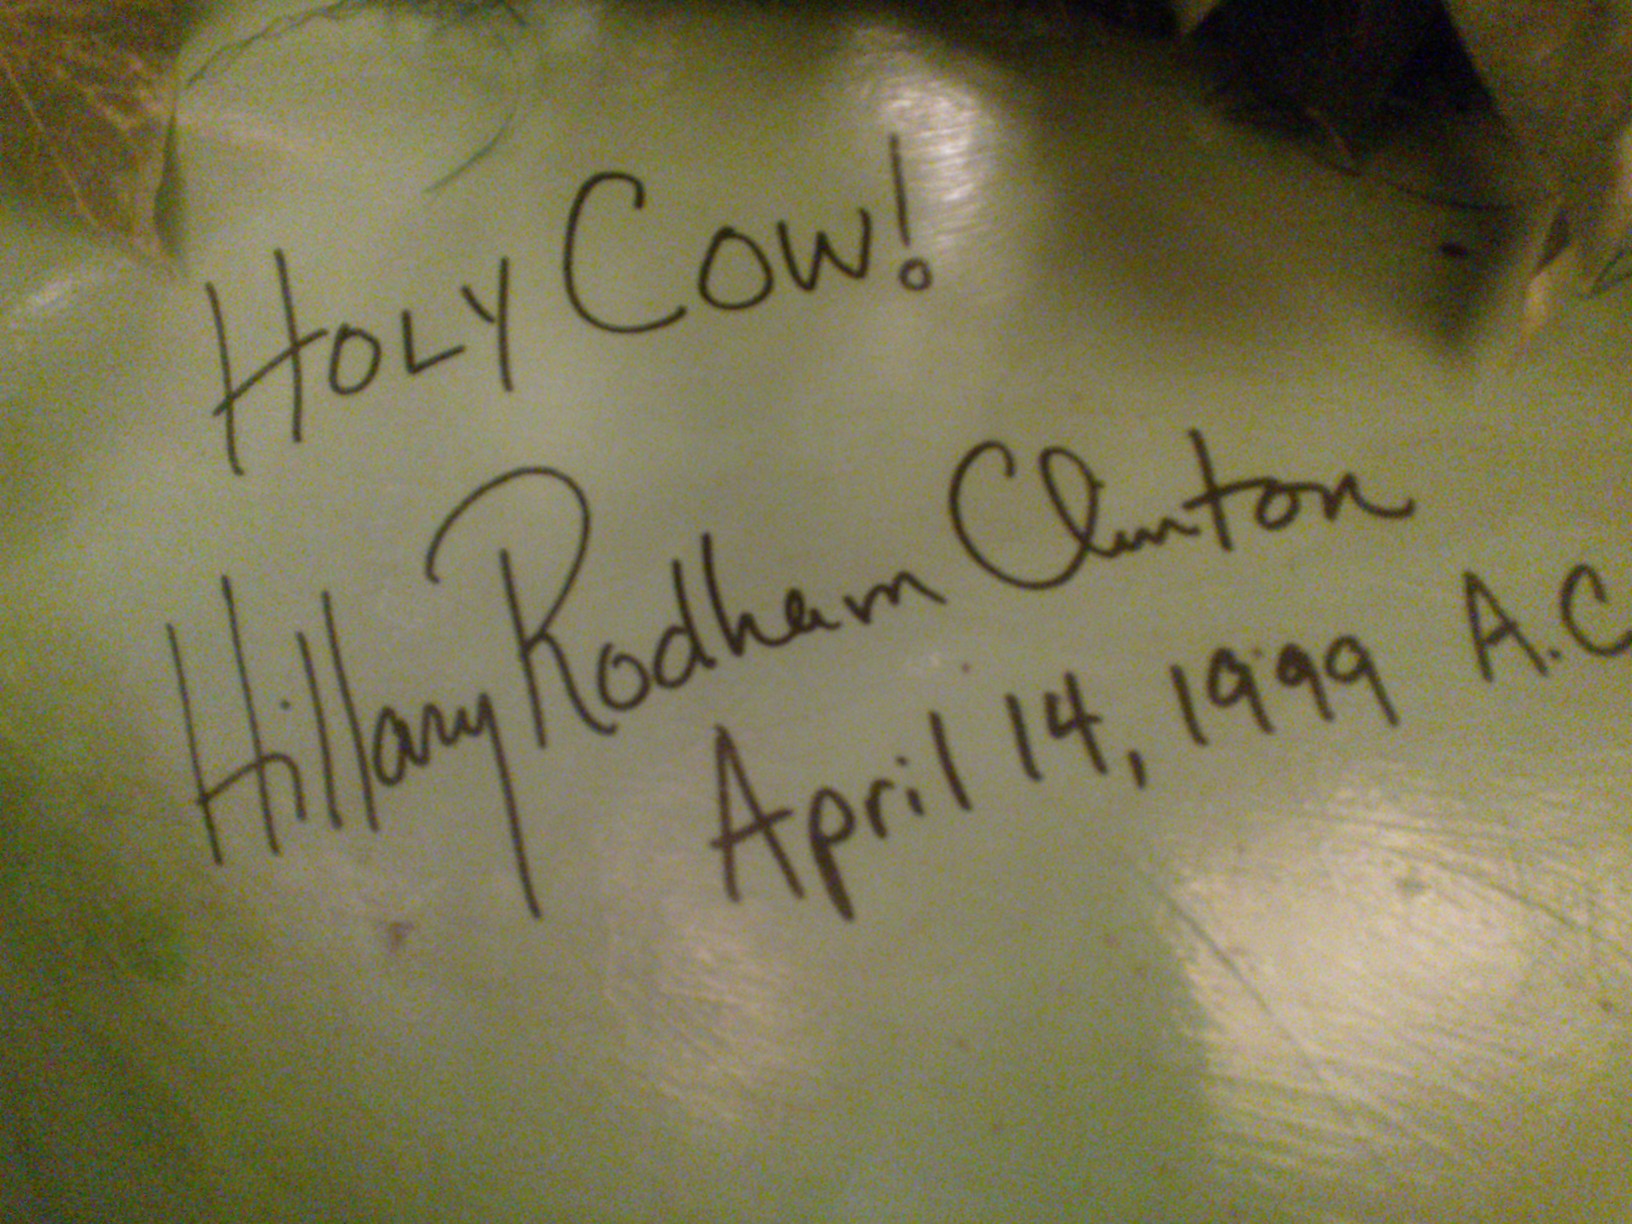 HOLY COW!
Hillary Rodham Clinton
April 14, 1999 A.C